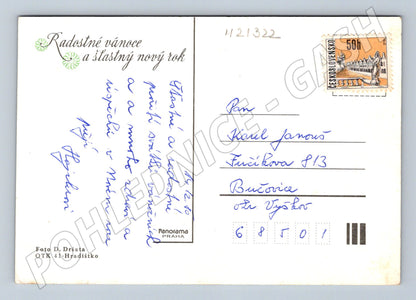 1121322
Radostné vánoce
a šťastný nový rok
50h
ČESKOSLOVENSKO
Šťastné a radostné
prožití svátků vánočních
a mnoho zdraví a
úspěchů v Novém roce
přejí
Pan
Karel Janouš
Fučíkova 813
Bučovice
okr Vyškov
6 8 5 0 1
Panorama
PRAHA
Foto D. Dršata
OTK 41 Hradištko
POHLEDNICE - GASH